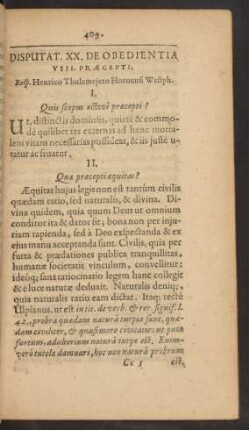 409.
DISPUTAT. XX. DE OBEDIENTIA
VIII. PRÆCEPTI.
Resp. Henrico Thulemejero Hornensi Westph.
I.
Quis scopus octavi præcepti?
UT, distinctis dominiis, quietè & commo-
dè quilibet res externas ad hanc morta-
lem vitam necessarias possideat, & iis justè u-
tatur ac fruatur.
II.
Quæ præcepti æquitas?
Æquitas hujus legis non est tantùm civilis
quædam ratio, sed naturalis, & divina. Di-
vina quidem, quia quum Deus ut omnium
conditor ita & dator sit; bona non per inju-
riam rapienda, sed à Deo exspectanda & ex
ejus manu acceptanda sunt. Civilis, quia per
furta & prædationes publica tranquillitas,
humanæ societatis vinculum, convellitur:
ideòq; sana ratiocinatio legem hanc collegit
& è luce naturæ deduxit. Naturalis deniq;,
quia naturalis ratio eam dictat. Itaq; rectè
Ulpianus, ut est in tit. de verb. & rer. signif. l.
42., probra quædam naturâ turpia sunt, quæ-
dam civiliter, & quasi more civitatis: ut puta
furtum, adulterium naturâ turpe est. Enim-
verò tutelæ damnari, hoc non naturâ probrum
Cc 5 est,